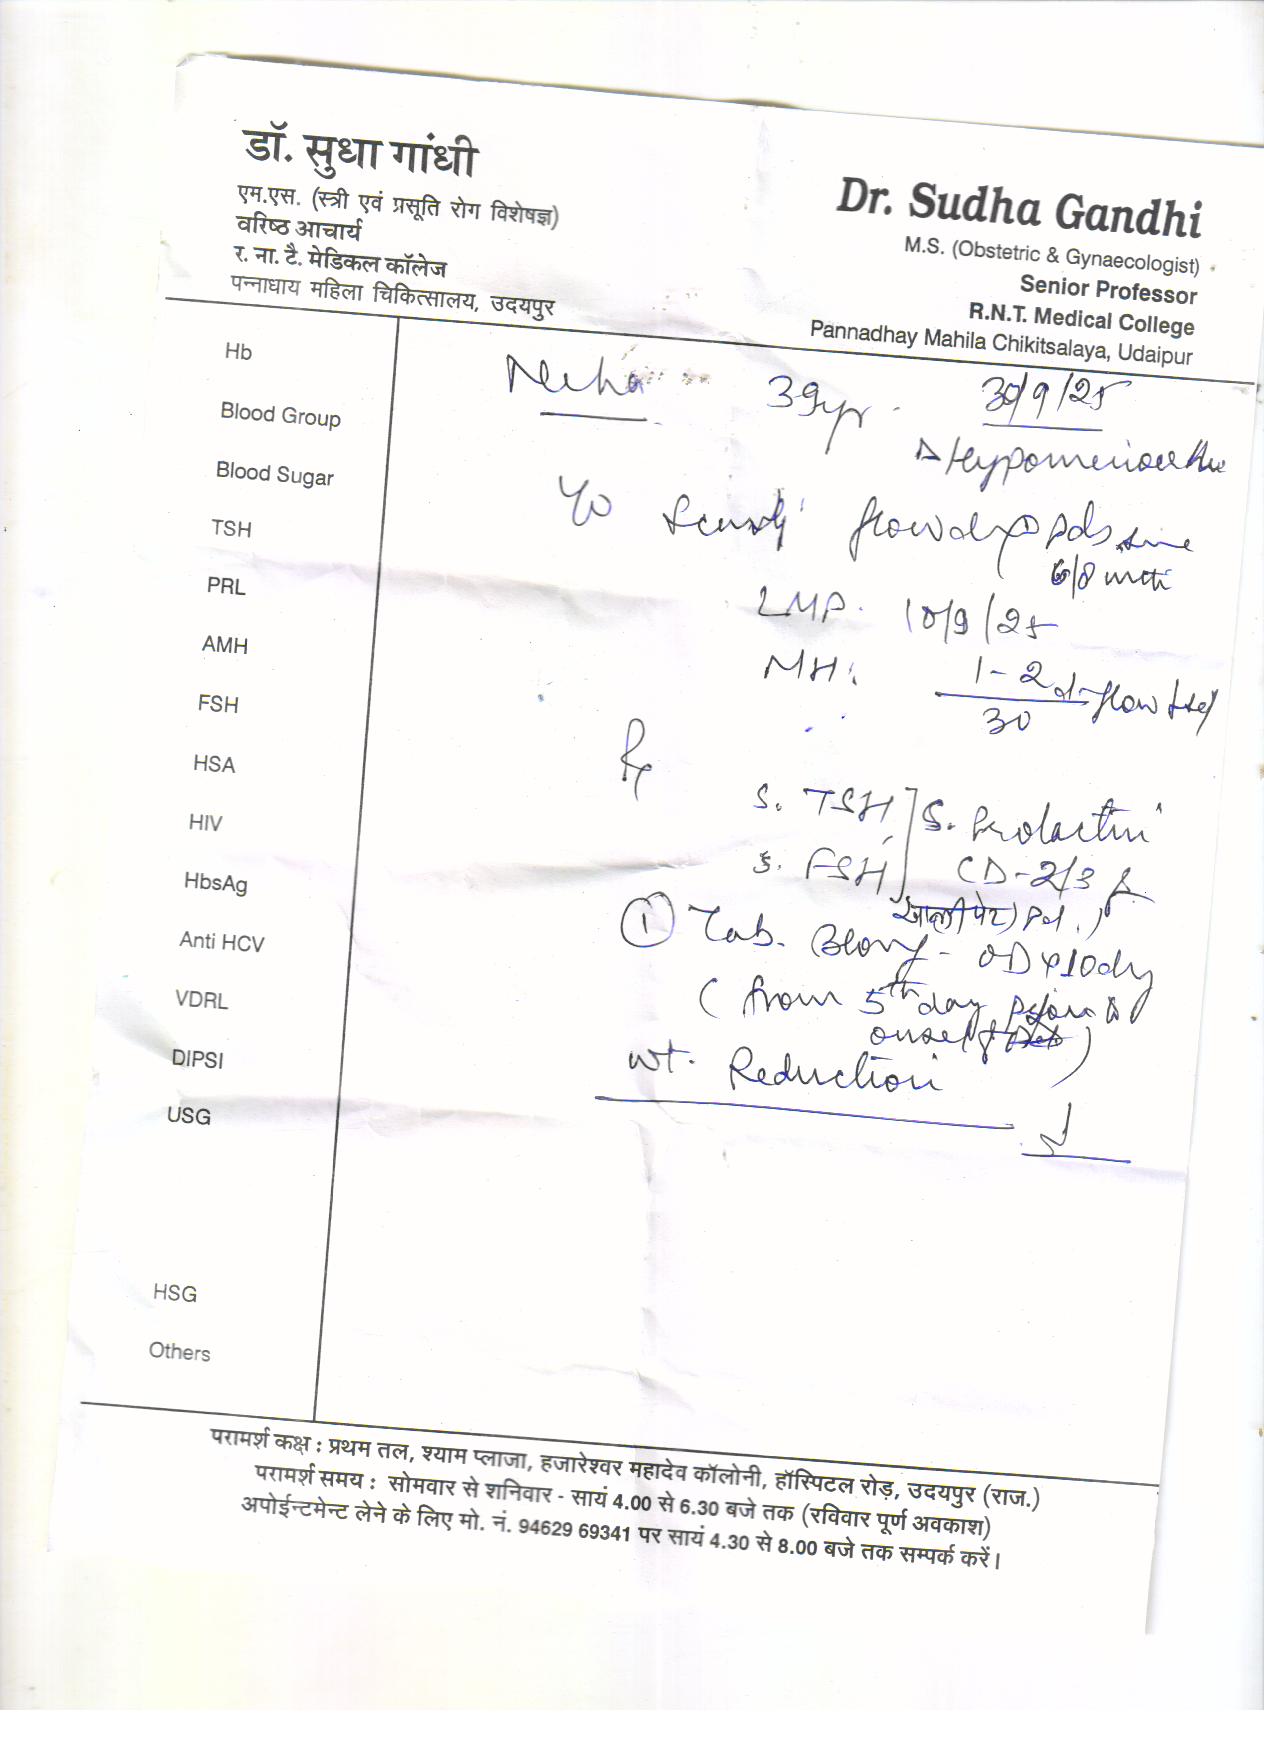 डॉ. सुधा गांधी
एम.एस. (स्त्री एवं प्रसूति रोग विशेषज्ञ)
वरिष्ठ आचार्य
र. ना. टै. मेडिकल कॉलेज
पन्नाधाय महिला चिकित्सालय, उदयपुर
Dr. Sudha Gandhi
M.S. (Obstetric & Gynaecologist)
Senior Professor
R.N.T. Medical College
Pannadhay Mahila Chikitsalaya, Udaipur
Hb
Blood Group
Blood Sugar
TSH
PRL
AMH
FSH
HSA
HIV
HbsAg
Anti HCV
VDRL
DIPSI
USG
HSG
Others
Neha 39yr 30/9/25
flow
6/8
LMP. 10/9/25
MH: 1-2 d flow
30
Rx
S. TSH S. Prolactin
S. FSH CD-2/3
खाली पेट
① Tab. - OD x 10 day
( from 5th day
onset of )
wt. Reduction
परामर्श कक्ष : प्रथम तल, श्याम प्लाजा, हजारेश्वर महादेव कॉलोनी, हॉस्पिटल रोड़, उदयपुर (राज.)
परामर्श समय : सोमवार से शनिवार - सायं 4.00 से 6.30 बजे तक (रविवार पूर्ण अवकाश)
अपोईन्टमेन्ट लेने के लिए मो. नं. 94629 69341 पर सायं 4.30 से 8.00 बजे तक सम्पर्क करें।